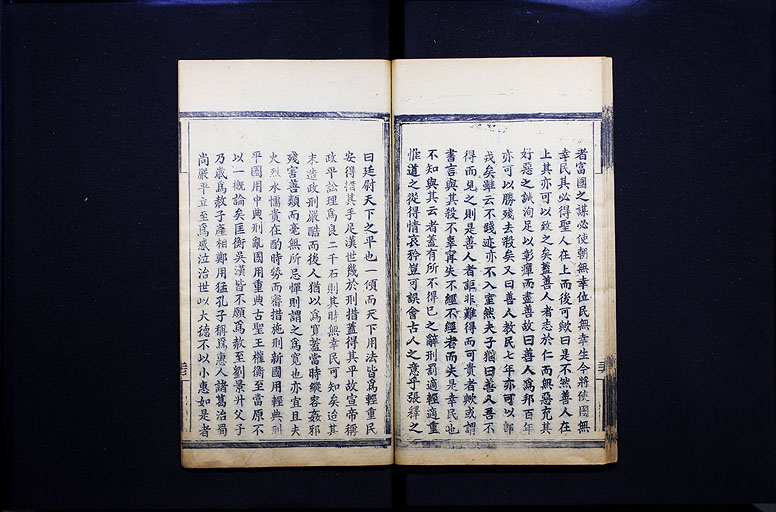 者富國之謀必使朝無幸位民無幸生今將使國無
幸民其必得聖人在上而後可歟曰是不然善人在
上其亦可以致之矣蓋善人者志於仁而無惡充其
好惡之誠洵足以彰癉而盡善故曰善人爲邦百年
亦可以勝殘去殺矣又曰善人教民七年亦可以卽
戎矣雖云不踐迹亦不入室然夫子猶曰善人吾不
得而見之則是善人者詎非難得而可貴者歟或謂
書言與其殺不辜寧失不經不經者而失是幸民也
不知與其云者蓋有所不得已之辭刑罰適輕適重
惟道之從得情哀矜豈可誤會古人之意乎張釋之
曰廷尉天下之平也一傾而天下用法皆爲輕重民
安得措其手足漢世幾於刑措蓋得其平故宣帝稱
政平訟理爲良二千石則其時無幸民可知矣迨其
末造政刑嚴酷而後人猶以爲寬蓋當時縱容姦邪
殘害善類而毫無所忌憚則謂之爲寬也亦宜且夫
火烈水懦貴在酌時勢而審措施刑新國用輕典刑
平國用中典刑亂國用重典古聖王權衡至當原不
以一概論矣匡衡吳漢皆不願爲赦至劉景升父子
乃歲爲赦子產相鄭用猛孔子稱爲惠人諸葛治蜀
尚嚴平立至爲感泣治世以大德不以小惠如是者